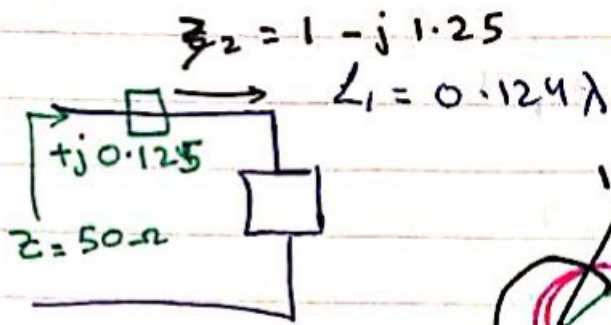 z₂ = 1 - j 1.25
L₁ = 0.124 λ
+j 0.125
Z = 50 Ω